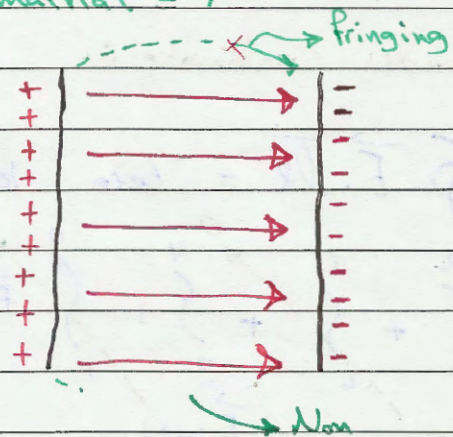 fringing
+ -
+ -
+ -
+ -
+ -
+ -
+ -
+ -
+ -
Non